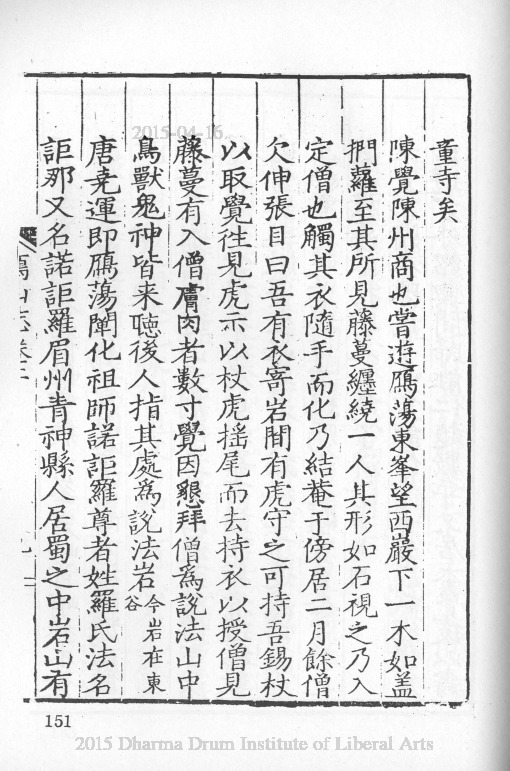 童寺矣
陳覺陳州商也嘗遊鴈蕩東峯望西巖下一木如盖
捫蘿至其所見藤蔓纏繞一人其形如石視之乃入
定僧也觸其衣隨手而化乃結菴于傍居二月餘僧
欠伸張目曰吾有衣寄岩間有虎守之可持吾錫杖
以取覺徃見虎示以杖虎揺尾而去持衣以授僧見
藤蔓有入僧膚肉者數寸覺因懇拜僧爲說法山中
鳥獸鬼神皆来聴後人指其處爲說法岩今岩在東谷
唐尭運即鴈蕩開化祖師諾詎羅尊者姓羅氏法名
詎那又名諾詎羅眉州青神縣人居蜀之中岩山有
鴈山志卷三
151
2015-04-16
2015 Dharma Drum Institute of Liberal Arts